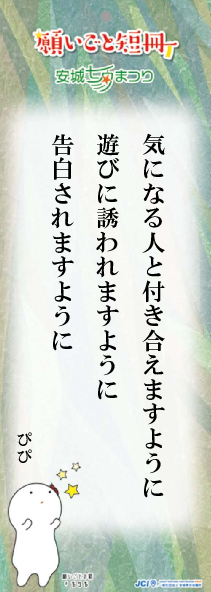 願いごと短冊
安城七夕まつり
気になる人と付き合えますように
遊びに誘われますように
告白されますように
ぴぴ
JCI